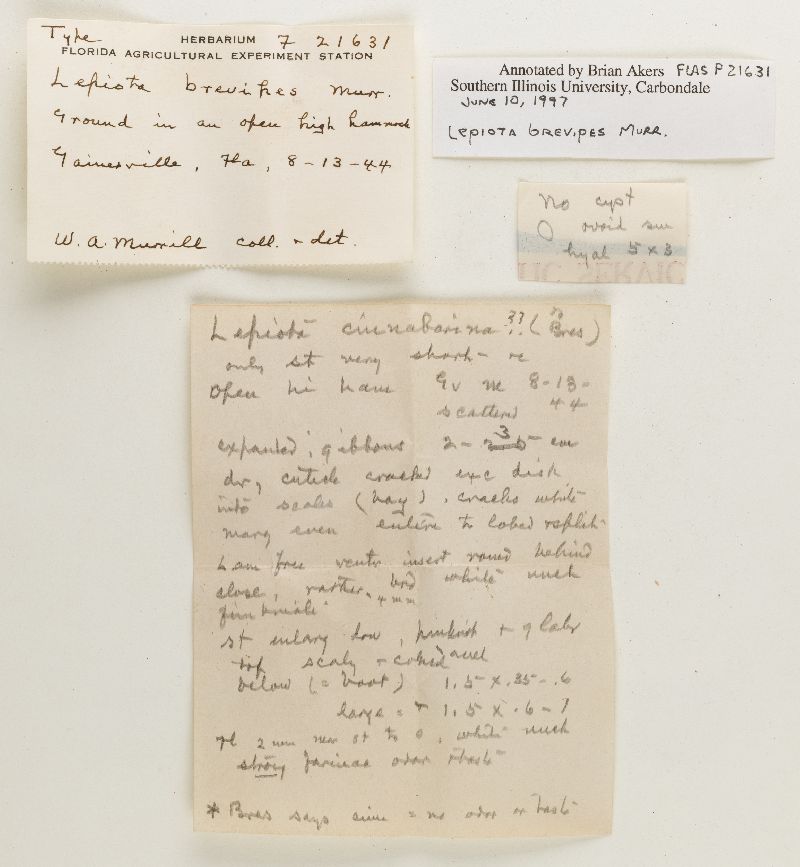 Type HERBARIUM F 21631
FLORIDA AGRICULTURAL EXPERIMENT STATION
Lepiota brevipes Murr.
Ground in an open high hammock
Gainesville, Fla, 8-13-44
W. A. Murrill coll. + det.
Annotated by Brian Akers FLAS F21631
Southern Illinois University, Carbondale
JUNE 10, 1997
LEPIOTA BREVIPES MURR.
No cyst
ovoid sm
hyal 5 x 3
TIC SERVIC
Lepiota cinnabarina ?? (Bres)
only st very short - re
Open hi ham Gv m 8-13-
scattered 44
expanded, gibbous 2 - 3 cm
dry, cuticle cracked exc disk
into scales (bay), cracks white
marg even entire to lobed
Lam free ventr insert round behind
close, rather brd white unch
4 mm
st enlarg dow, pinkish + glabr
top scaly +
below (= boot) 1.5 x .35-.6
large = 1.5 x .6-1
fl 2 mm near st to 0, white unch
strong farinac odor + taste
* Bres says = no odor or taste